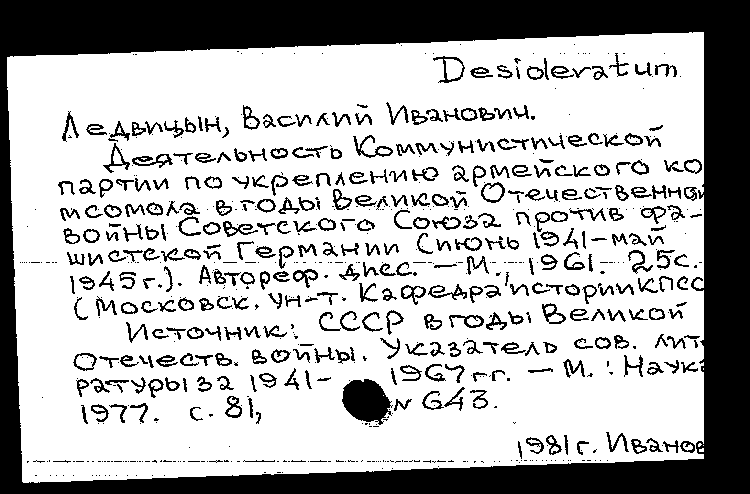 Desideratum
Ледвицын, Василий Иванович.
Деятельность Коммунистической
партии по укреплению армейского ко
мсомола в годы Великой Отечественной
войны Советского Союза против фа-
шистской Германии (июнь 1941-май
1945 г.). Автореф. дисс. — М., 1961. 25с.
(Московск. ун-т. Кафедра истории КПСС
Источник: СССР в годы Великой
Отечеств. войны. Указатель сов. лит
ратуры за 1941- 1967 гг. — М. : Наука
1977. с. 81, N 643.
1981 г. Иванов